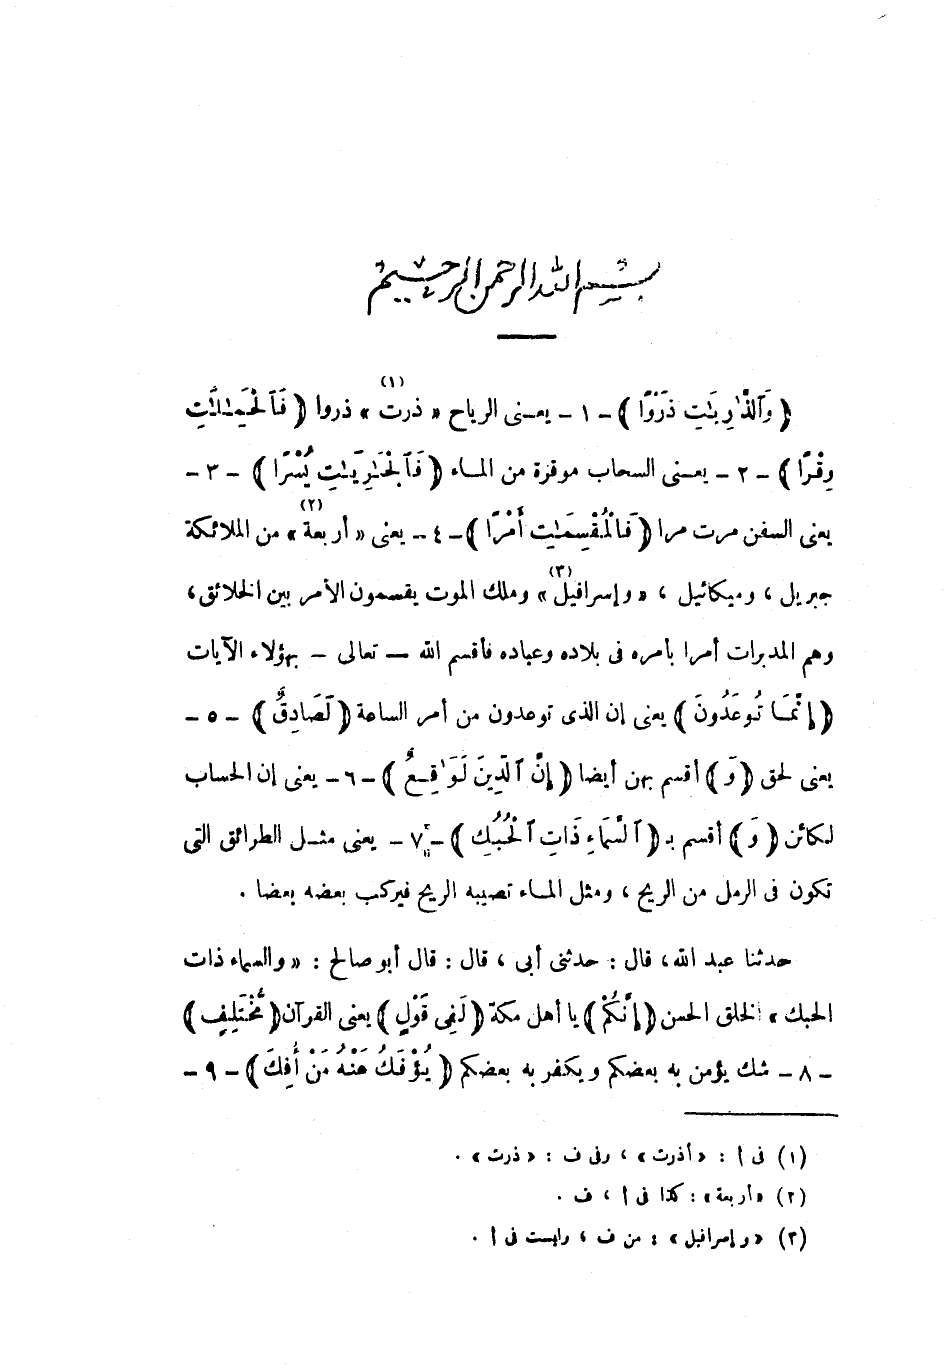 بسم الله الرحمن الرحيم
(وَٱلذَّٰرِيَٰتِ ذَرْوًا) - ١ - يعنى الرياح « ذرت (١) » ذروا (فَٱلْحَٰمِلَٰتِ
وِقْرًا) - ٢ - يعنى السحاب موقرة من الماء (فَٱلْجَٰرِيَٰتِ يُسْرًا) - ٣ -
يعنى السفن مرت مرا (فَالْمُقَسِّمَٰتِ أَمْرًا) - ٤ - يعنى « أربعة (٢) » من الملائكة
جبريل ، وميكائيل ، « وإسرافيل (٣) » وملك الموت يقسمون الأمر بين الخلائق ،
وهم المدبرات أمرا بأمره فى بلاده وعباده فأقسم الله — تعالى - بهؤلاء الآيات
(إِنَّمَا تُوعَدُونَ) يعنى إن الذى توعدون من أمر الساعة (لَصَادِقٌ) - ٥ -
يعنى لحق (وَ) أقسم بهن أيضا (إِنَّ ٱلدِّينَ لَوَٰقِعٌ) - ٦ - يعنى إن الحساب
لكائن (وَ) أقسم بـ (ٱلسَّمَاءِ ذَاتِ ٱلْحُبُكِ) - ٧ - يعنى مثل الطرائق التى
تكون فى الرمل من الريح ، ومثل الماء تصيبه الريح فيركب بعضه بعضا .
حدثنا عبد الله ، قال : حدثنى أبى ، قال : قال أبو صالح : « والسماء ذات
الحبك » الخلق الحسن (إِنَّكُمْ) يا أهل مكة (لَفِى قَوْلٍ) يعنى القرآن (مُّخْتَلِفٍ)
- ٨ - شك يؤمن به بعضكم ويكفر به بعضكم (يُؤْفَكُ عَنْهُ مَنْ أُفِكَ) - ٩ -
(١) فى أ : « أذرت » ، وفى ف : « ذرت » .
(٢) « أربعة » : كذا فى أ ، ف .
(٣) « وإسرافيل » : من ف ، وليست فى أ .